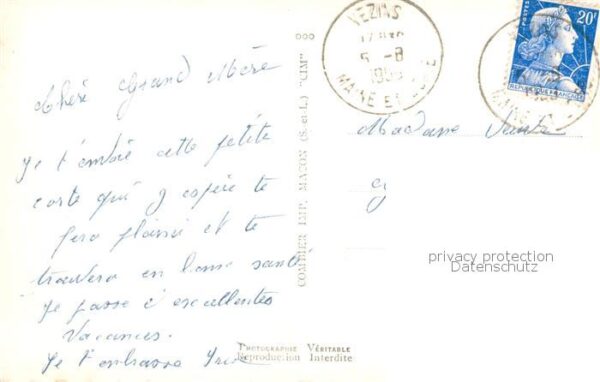 Chère Grand Mère
Je t'envoie cette petite
carte qui j espère te
fera plaisir et te
trouvera en bonne santé
Je passe d'excellentes
vacances.
Je t'embrasse
COMBIER IMP. MACON (S.-et-L.) "CIM"
PHOTOGRAPHIE VÉRITABLE
Reproduction Interdite
VEZINS
5 - 8
MAINE ET LOIRE
POSTES 20F
REPUBLIQUE FRANÇAISE
Madame
privacy protection
Datenschutz